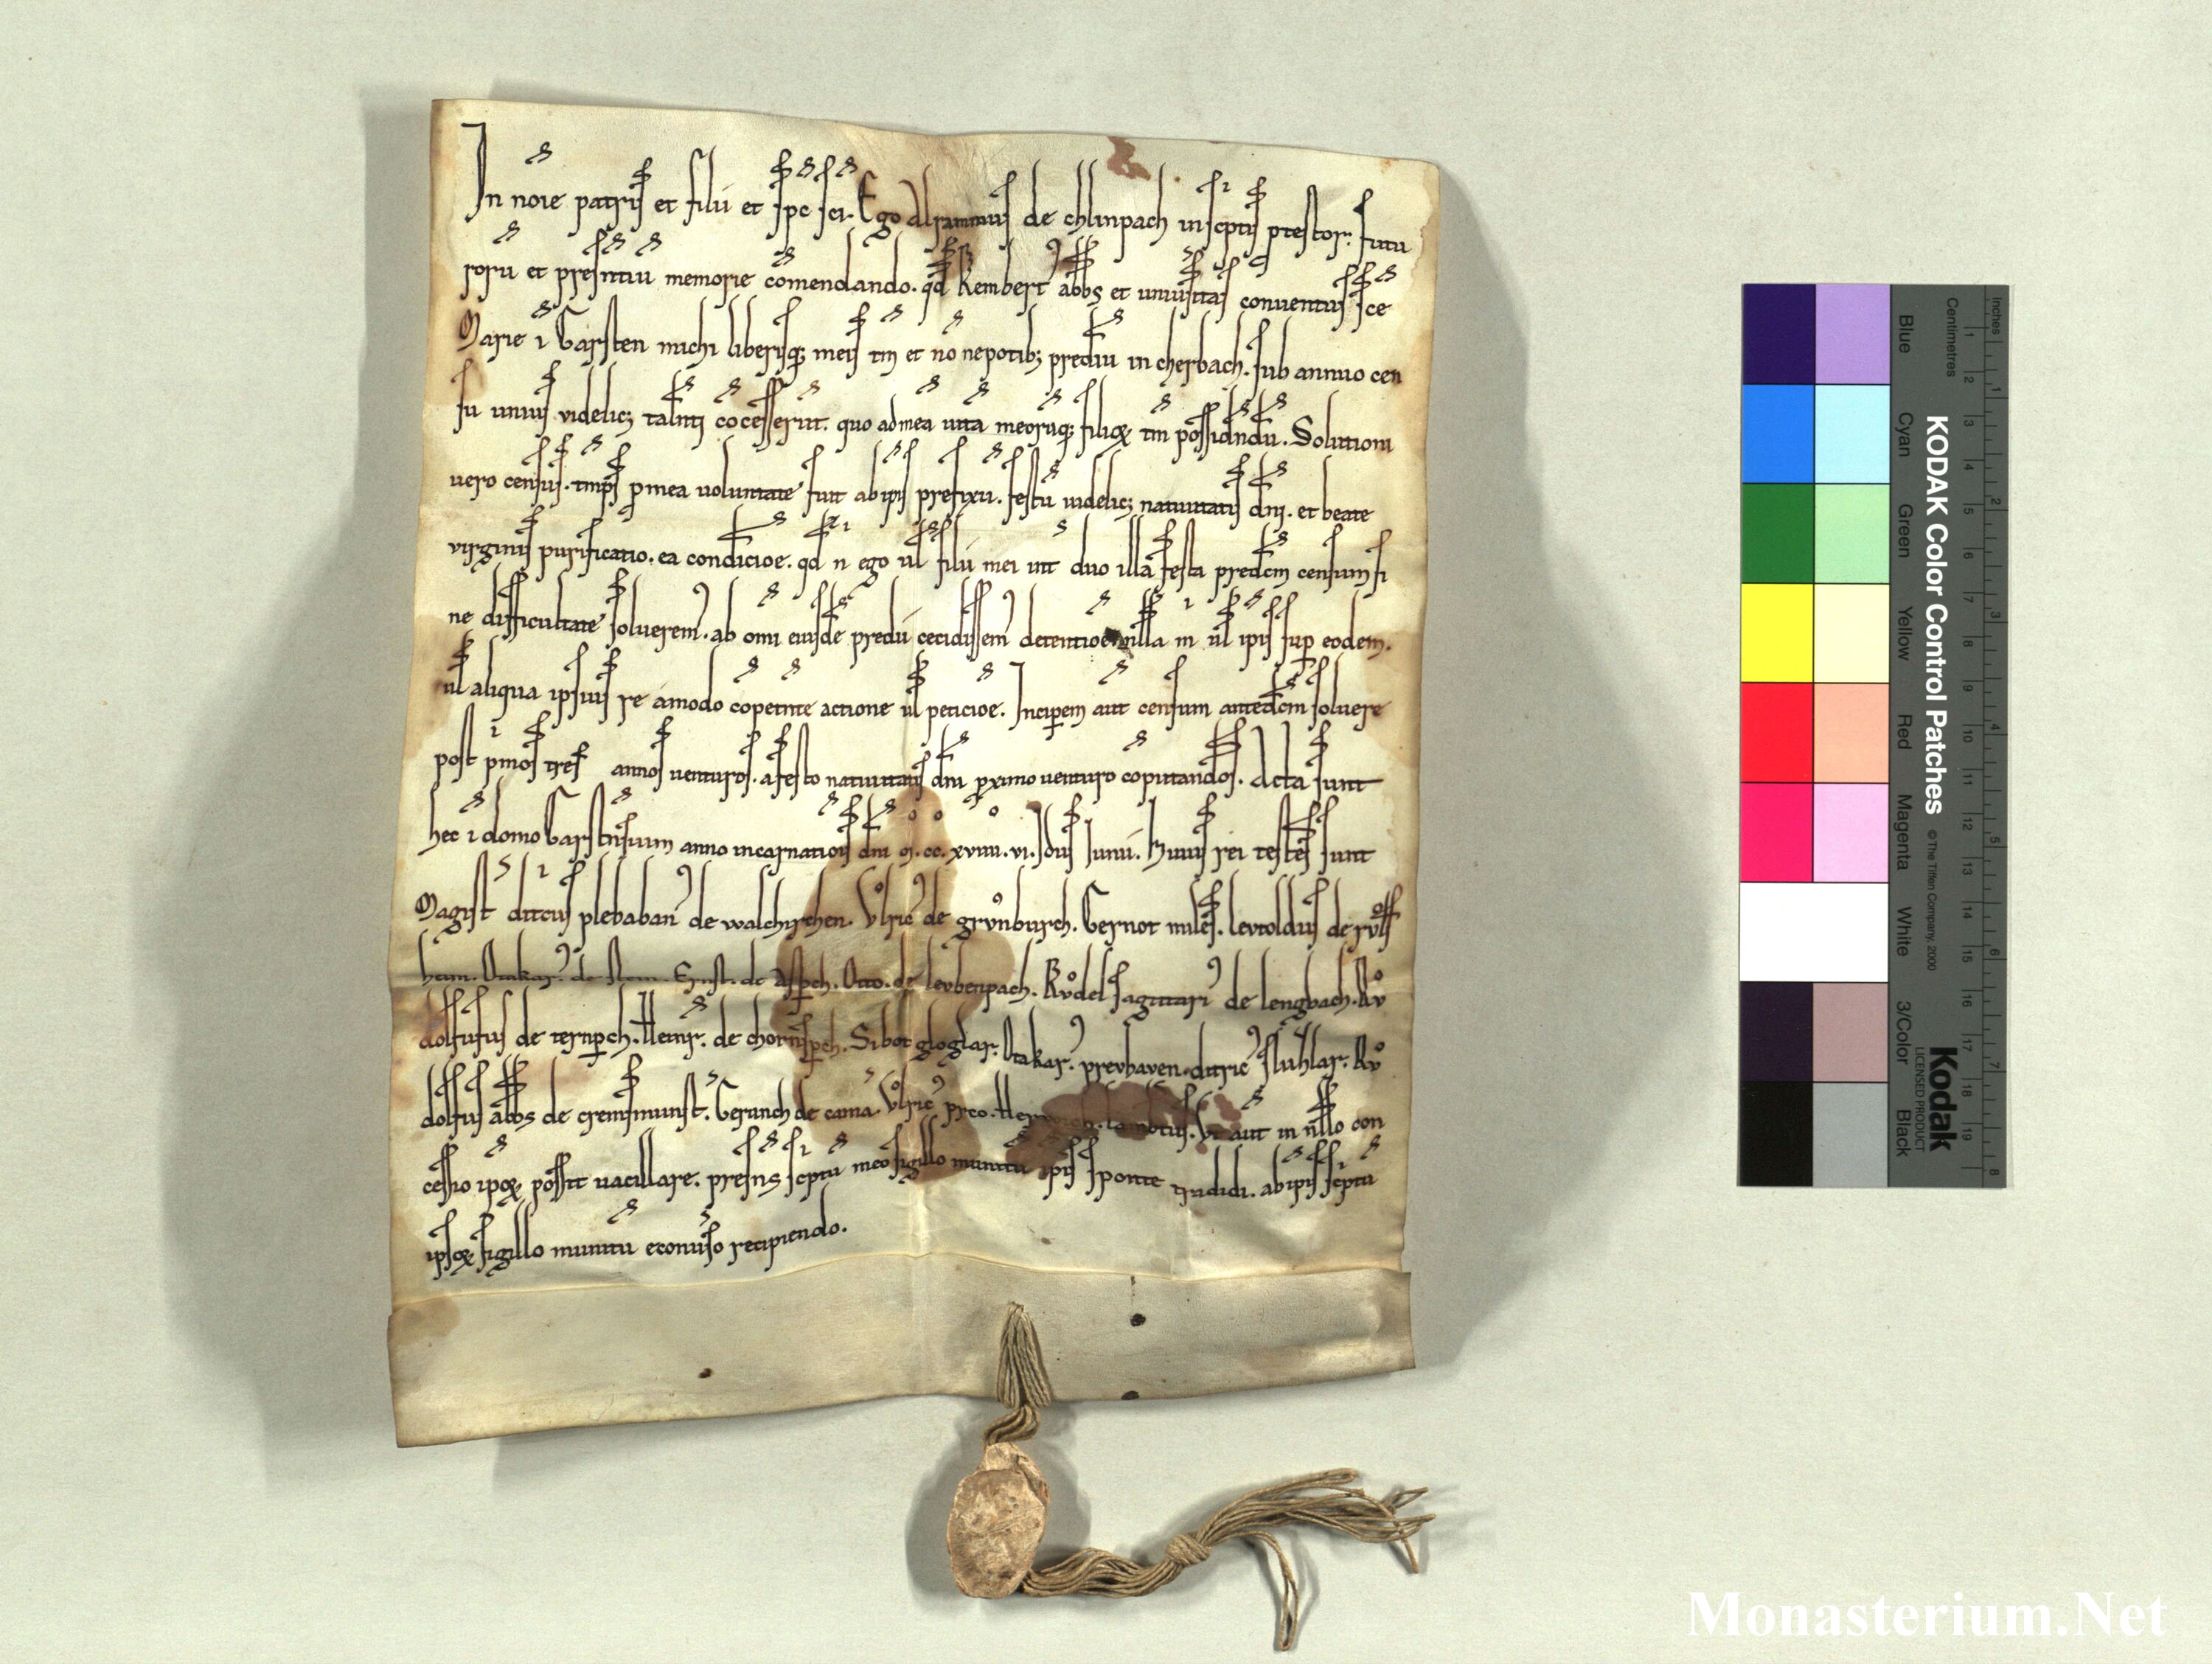 In noīe patris et filii et spc sci. Ego Alrammus de chlinpach in scptis ptestor. futu
roru et presntiu memorie comendando. qd Rembert' abbs et univsitas conventus sce
Marie ī Garsten michi liberisq; meis tm et nō nepotib; prediu in cherbach. sub annuo cen
su unius videlic; talnti cocesserut. quo ad mea vita meoruq; filioꝝ tm possidndu. Solutioni
vero census. tmps p mea voluntate fuit ab ipis prefixu. festu videlic; nativitatis dni. et beate
virginis purificatio. ea condicioe. qd n ego ul filii mei int duo illa festa predcm censum si
ne difficultate solverem'. ab omi eiusde predii cecidissem' detentioe nulla m ul ipis sup eodem.
ul aliqua ipsius re amodo copetnte actione ul peticioe. Incipem aut censum antedcm solvere
post pmos tres annos venturos. a festo nativitatis dni pximo venturo coputandos. Acta sunt
hec ī domo Garstnsium anno incarnatiois dni m. cc. xviiii. vi. Idus Junii. Huius rei testes sunt
Magist ditcus plebaban' de walchirchen. Vͦlric' de grvͦnburch. Gernot miles. levtoldus de rvͦff
ham. Otakar' de stein. Ernst. de Aspch. Otto. de levbenpach. Rvͦdel sagittari' de lengbach. Rvͦ
dolfusus de ternpch. Heinr. de chornspch. Sibot gloglar. Otakar' prevhaven. ditric' sluhlar. Rvͦ
dolfus abbs de cremsmunst. Gerunch de cama. Vͦlric' preco. Ut aut in nllo con
cessio ipoꝝ possit vacillare. presns scptu meo sigillo munitu ipis sponte tradidi. ab ipis scptu
ipsoꝝ sigillo munitu econvso recipiendo.
Inches
Centimetres
1 2 3 4 5 6 7 8
1 2 3 4 5 6 7 8 9 10 11 12 13 14 15 16 17 18 19
KODAK Color Control Patches © The Tiffen Company, 2000
Kodak
LICENSED PRODUCT
Blue Cyan Green Yellow Red Magenta White 3/Color Black
Monasterium.Net